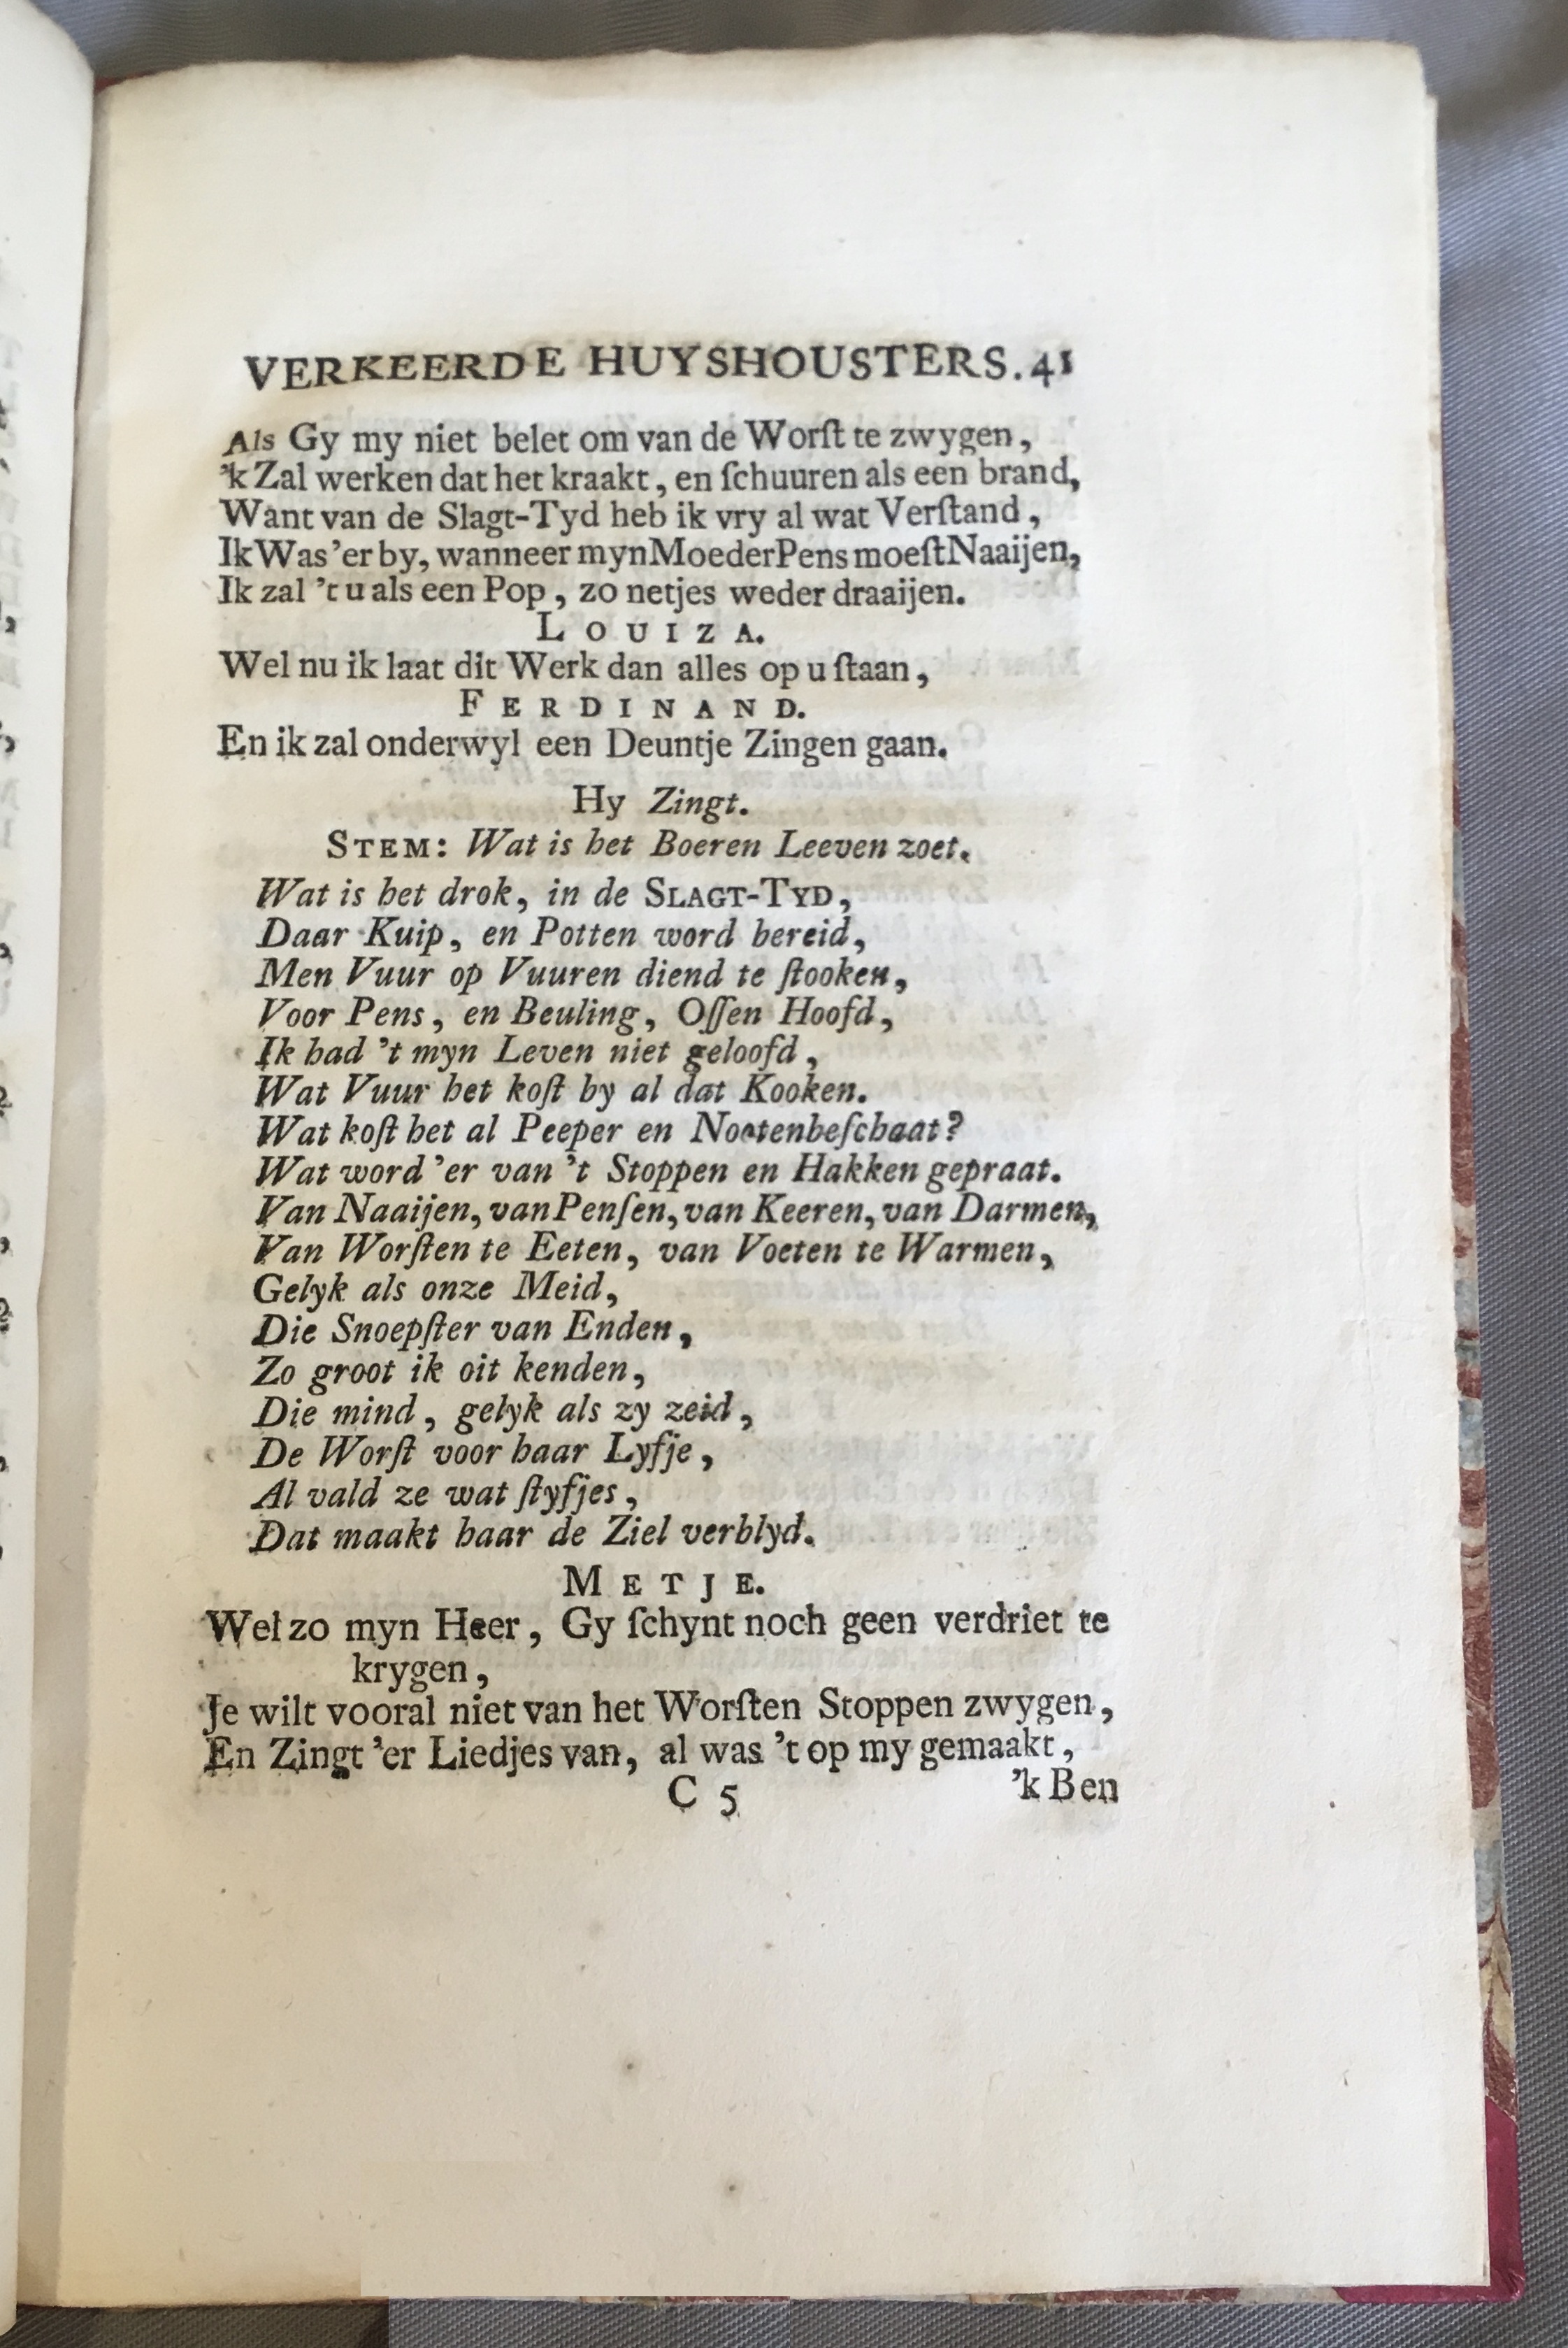 VERKEERDE HUYSHOUSTERS. 41
Als Gy my niet belet om van de Worſt te zwygen,
'k Zal werken dat het kraakt, en ſchuuren als een brand,
Want van de Slagt-Tyd heb ik vry al wat Verſtand,
Ik Was 'er by, wanneer myn Moeder Pens moeſt Naaijen,
Ik zal 't u als een Pop, zo netjes weder draaijen.
LOUIZA.
Wel nu ik laat dit Werk dan alles op u ſtaan,
FERDINAND.
En ik zal onderwyl een Deuntje Zingen gaan.
Hy Zingt.
STEM: Wat is het Boeren Leeven zoet.
Wat is het drok, in de SLAGT-TYD,
Daar Kuip, en Potten word bereid,
Men Vuur op Vuuren diend te ſtooken,
Voor Pens, en Beuling, Oſſen Hoofd,
Ik had 't myn Leven niet geloofd,
Wat Vuur het koſt by al dat Kooken.
Wat koſt het al Peeper en Nootenbeſchaat?
Wat word 'er van 't Stoppen en Hakken gepraat.
Van Naaijen, van Penſen, van Keeren, van Darmen,
Van Worſten te Eeten, van Voeten te Warmen,
Gelyk als onze Meid,
Die Snoepſter van Enden,
Zo groot ik oit kenden,
Die mind, gelyk als zy zeid,
De Worſt voor haar Lyfje,
Al vald ze wat ſtyfjes,
Dat maakt haar de Ziel verblyd.
METJE.
Wel zo myn Heer, Gy ſchynt noch geen verdriet te
krygen,
Je wilt vooral niet van het Worſten Stoppen zwygen,
En Zingt 'er Liedjes van, al was 't op my gemaakt,
C 5 'k Ben